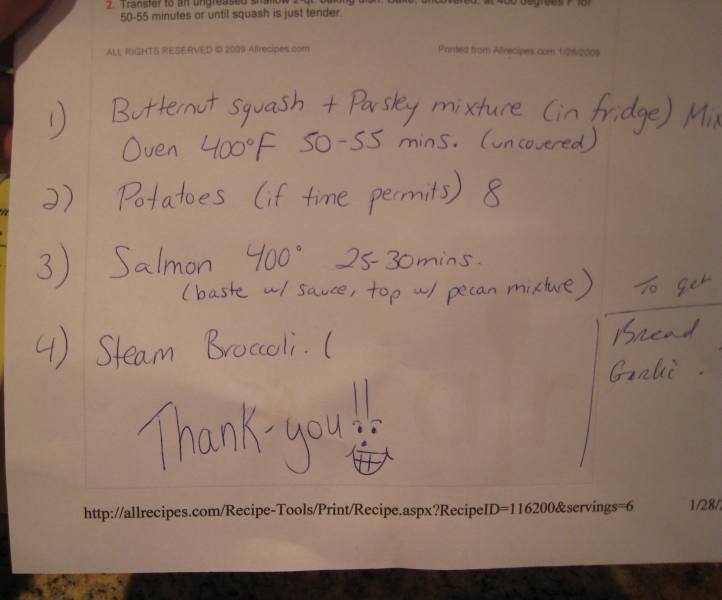 2. Transfer to an ungreased shallow 2-qt. baking dish. Bake, uncovered, at 400 degrees F for
50-55 minutes or until squash is just tender.
ALL RIGHTS RESERVED © 2009 Allrecipes.com Printed from Allrecipes.com 1/28/2009
1) Butternut squash + Parsley mixture (in fridge) Mix
Oven 400°F 50-55 mins. (uncovered)
2) Potatoes (if time permits) 8
3) Salmon 400° 25-30mins.
(baste w/ sauce, top w/ pecan mixture)
To get
Bread
Garlic
4) Steam Broccoli. (
Thank-you!!
http://allrecipes.com/Recipe-Tools/Print/Recipe.aspx?RecipeID=116200&servings=6 1/28/